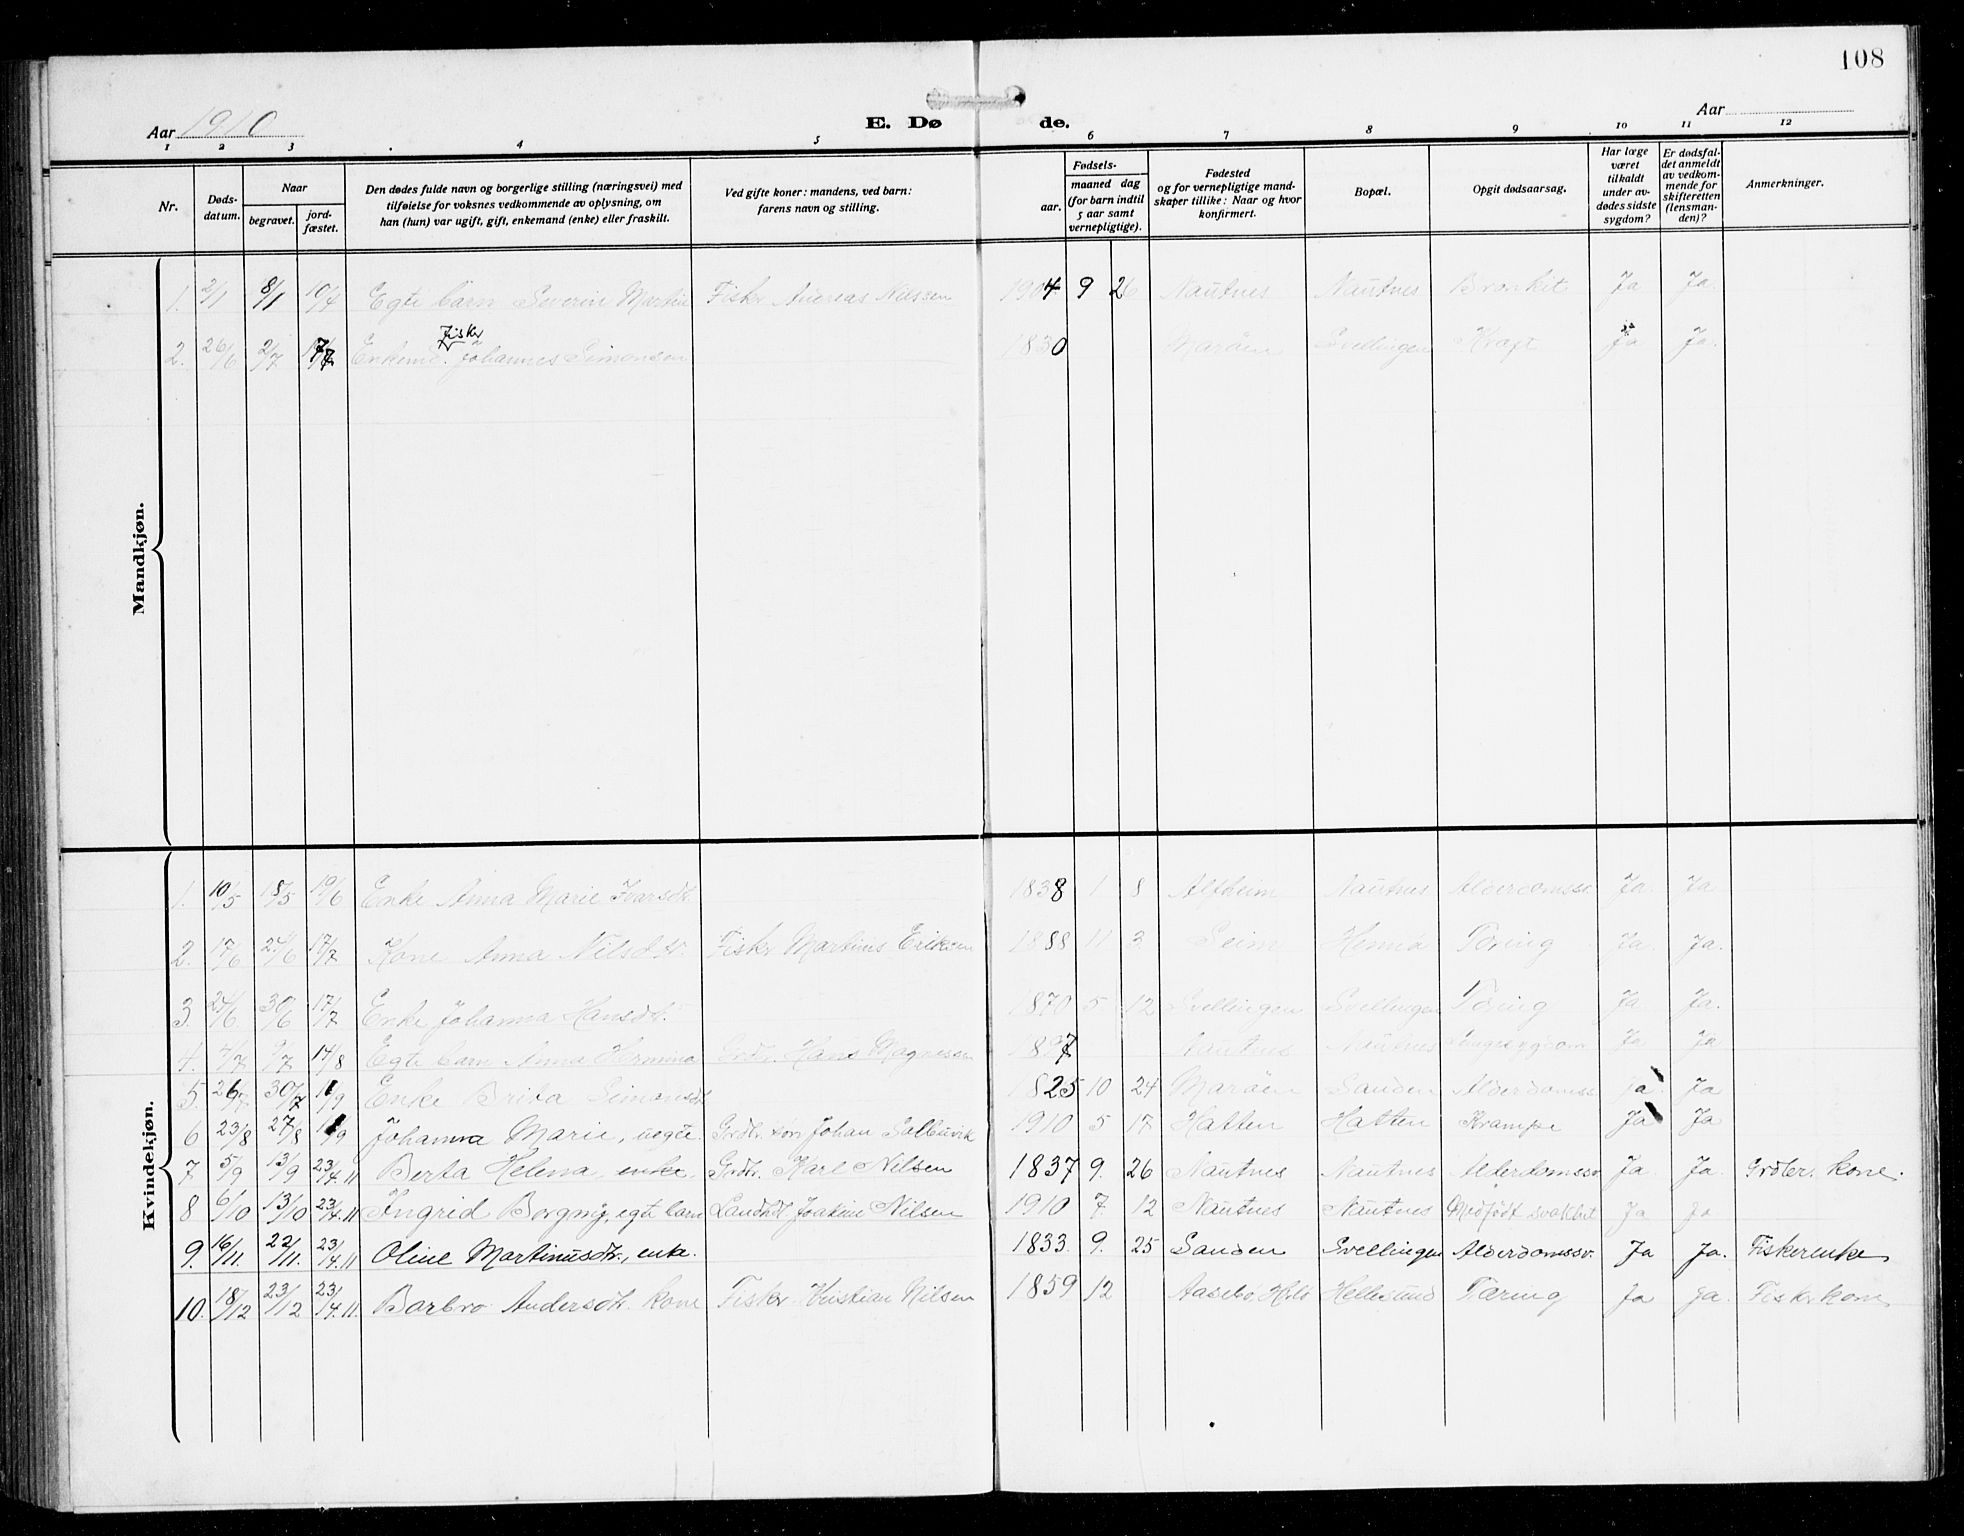 108
Aar 1910 E. Dø de. Aar
1 2 3 4 5 6 7 8 9 10 11 12
Nr. Døds-datum. Naar begravet. jord-fæstet. Den dødes fulde navn og borgerlige stilling (næringsvei) med tilføielse for voksnes vedkommende av oplysning, om han (hun) var ugift, gift, enkemand (enke) eller fraskilt. Ved gifte koner: mandens, ved barn: farens navn og stilling. Fødsels- aar. maaned dag (for barn indtil 5 aar samt vernepligtige). Fødested og for vernepligtige mand-skaper tillike: Naar og hvor konfirmert. Bopæl. Opgit dødsaarsag. Har læge været tilkaldt under av-dødes sidste sygdom? Er dødsfal-det anmeldt av vedkom-mende for skifteretten (lensman-den)? Anmerkninger.
Mandkjøn.
1. 2/1 8/1 10/4 Egte barn Severin Martin Fisker Andreas Nilssen 1904 9 26 Nautnes Nautnes Bronkit Ja Ja.
Fisker
2. 26/6 2/7 17/7 Enkem. Johannes Simonsen 1830 Marøen Svellingen Kræft Ja Ja.
Kvindekjøn.
1. 10/5 18/5 19/6 Enke Anna Marie Ivarsdtr. 1838 1 8 Alfheim Nautnes Alderdomssv. Ja. Ja
2. 17/6 24/6 17/7 Kone Anna Nilsdtr. Fisker Martinus Eriksen 1888 11 3 Seim Tæring Ja Ja.
3. 24/6 30/6 17/7 Enke Johanna Hansdtr. 1870 5 12 Svellingen Svellingen Tæring Ja Ja.
4. 4/7 9/7 14/8 Egte barn Anna Hermina Grdbr. Hans Magnesen 1897 Nautnes Nautnes Ja Ja
5. 26/7 30/7 11/9 Enke Brita Simonsdtr 1825 10 24 Marøen Sanden Alderdomssv. Ja Ja
6 23/8 27/8 11/9 Johanna Marie, uegte. Grdbr. søn Johan Sallesvik 1910 5 17 Hatten Hatten Krampe Ja Ja
7 5/9 13/9 23/4.11 Berta Helena, enke. Grdbr. Karl Nilsen 1837 9. 26 Nautnes Nautnes Alderdomssv. Ja. Ja. Grdbr. kone.
8 6/10 13/10 23/4.11 Ingrid Borgny, egte barn Landhdl. Joakim Nilsen 1910 7. 12 Nautnes Nautnes Medfødt svakhet Ja Ja
9. 16/11. 22/11. 23/4.11 Oline Martinusdtr., enke. 1833. 9. 25 Sanden Svellingen Alderdomssv. Ja Ja. Fiskerenke
10. 18/12 23/12 23/4.11. Barbro Andersdtr. kone Fisker Kristian Nilsen 1859 12 Aasebø, Hellesund Tæring Ja Ja. Fisker kone